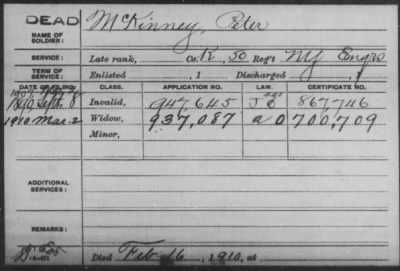 DEAD
McKinney, Peter
NAME OF
SOLDIER:
SERVICE: Late rank, Co. K, 50 Reg't NY Engrs
TERM OF
SERVICE: Enlisted , 1 Discharged , 1
DATE OF FILING. CLASS. APPLICATION NO. LAW. CERTIFICATE NO.
1890 Sept. 8 Invalid, 947,645 867,746
1910 Mar. 2 Widow, 937,087 700,709
Minor,
ADDITIONAL
SERVICES:
REMARKS:
Died Feb. 16, 1910, at